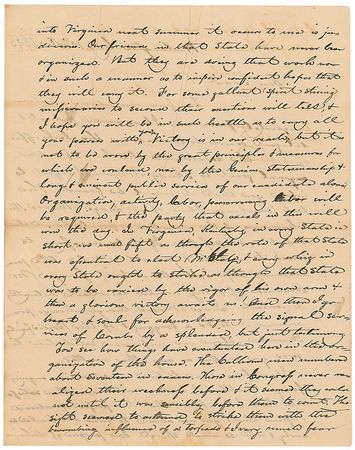 into Virginia next summer it occurs to me is just
decisive. Our friends in that State have never been
organized. But they are doing that work now
& in such a manner as to inspire confident hopes that
they will carry it. For some gallant spirit stirring
missionaries to second their exertions will tell &
I hopes you will be in such health as to carry all
your powers with you. Victory is in our reach, but it is
not to be won by the great principles & measures for
which we contend, nor by the Genius Statesmanship &
long & eminent public services of our candidate alone
Organization, activity, labor, persevering labor will
be required & the party that excels in this will
win the day. In Virginia, Kentucky in every State in
short we must fight as though the vote of that State
was essential to elect Mr Clay & every whig in
every State ought to strike as though that State
was to be carried by the vigor of his own arm &
then a glorious victory awaits us. And then I go
heart & soul for acknowledging the signal serv-
ices of by a splendid, but just testimony
You see how things have eventuated here in the or-
ganization of the house. The Calhoun men numbered
about seventeen in caucus. Those in Congress never re-
alized their weakness before & it seemed they would
not until it was before them to count. The
sight seemed to astound, to strike them with the
benumbing influence of a torpedo & I very much fear